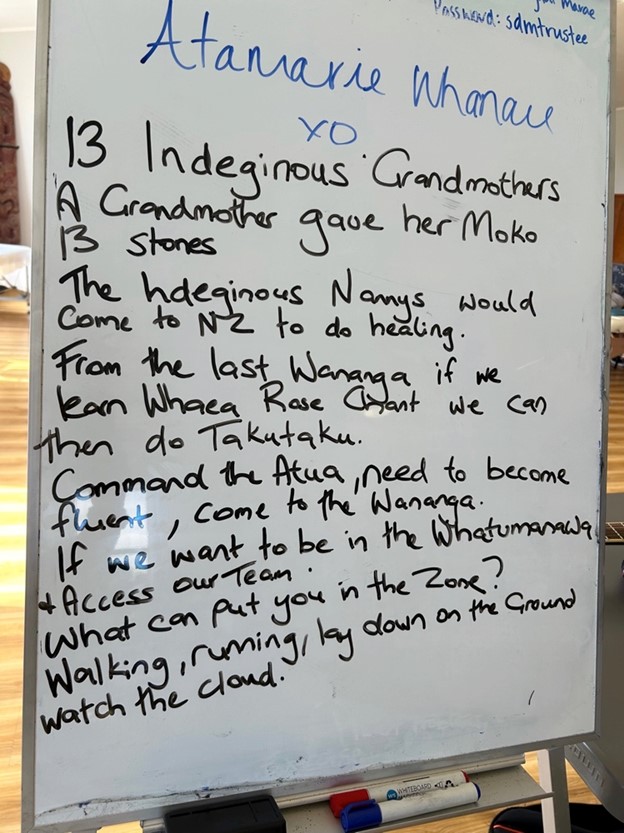 Marae
Password: sdmtrustee
Atamarie Whanau
XO
13 Indeginous Grandmothers
A Grandmother gave her Moko
13 stones
The Indeginous Nannys would
Come to NZ to do healing.
From the last Wananga if we
learn Whaea Rose Chant we can
then do Takutaku.
Command the Atua, need to become
fluent, come to the Wananga.
If we want to be in the Whatumanawa
+ Access our Team.
What can put you in the Zone?
Walking, running, lay down on the Ground
watch the cloud.
WHITEBOARD